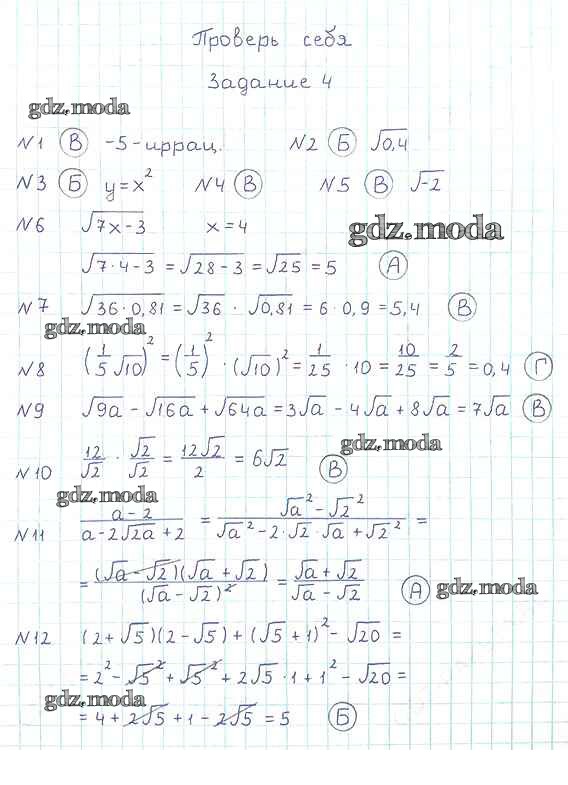 Проверь себя
Задание 4
gdz.moda
№1 (В) -5 - иррац. №2 (Б) √0,4
№3 (Б) y = x² №4 (В) №5 (В) √-2
№6 √7x - 3 x = 4
gdz.moda
√7·4 - 3 = √28 - 3 = √25 = 5 (А)
№7 √36·0,81 = √36 · √0,81 = 6 · 0,9 = 5,4 (В)
gdz.moda
№8 (1/5 √10)² = (1/5)² · (√10)² = 1/25 · 10 = 10/25 = 2/5 = 0,4 (Г)
№9 √9a - √16a + √64a = 3√a - 4√a + 8√a = 7√a (В)
gdz.moda
№10 12/√2 · √2/√2 = 12√2/2 = 6√2 (В)
gdz.moda
№11 (a - 2)/(a - 2√2a + 2) = (√a² - √2²)/(√a² - 2·√2·√a + √2²) =
= (√a - √2)(√a + √2)/(√a - √2)² = (√a + √2)/(√a - √2) (А) gdz.moda
№12 (2 + √5)(2 - √5) + (√5 + 1)² - √20 =
= 2² - √5² + √5² + 2√5·1 + 1² - √20 =
gdz.moda
= 4 + 2√5 + 1 - 2√5 = 5 (Б)